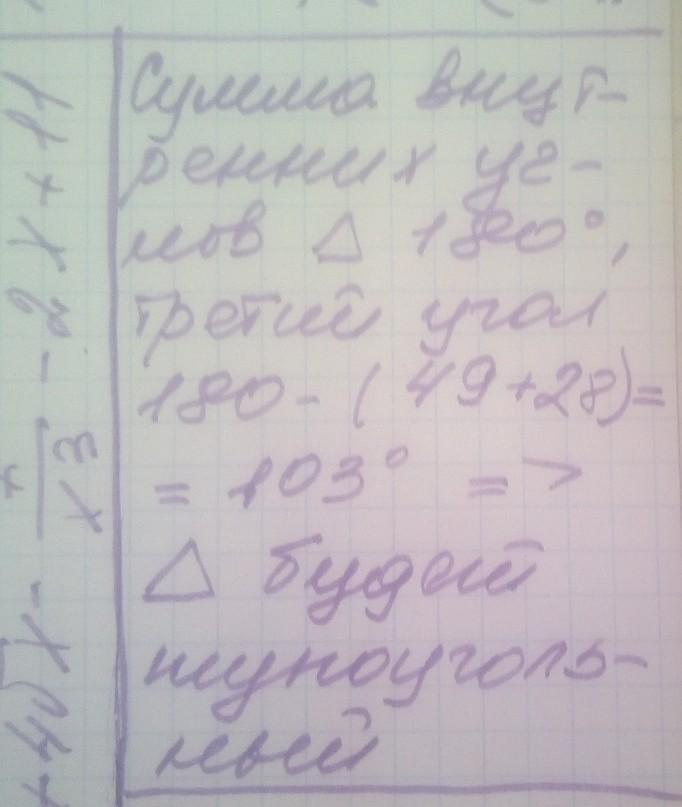 Сумма внут-
ренних уг-
лов △ 180°,
третий угол
180-(49+28)=
= 103° =>
△ будет
тупоуголь-
ный
- 2x + 11
x3